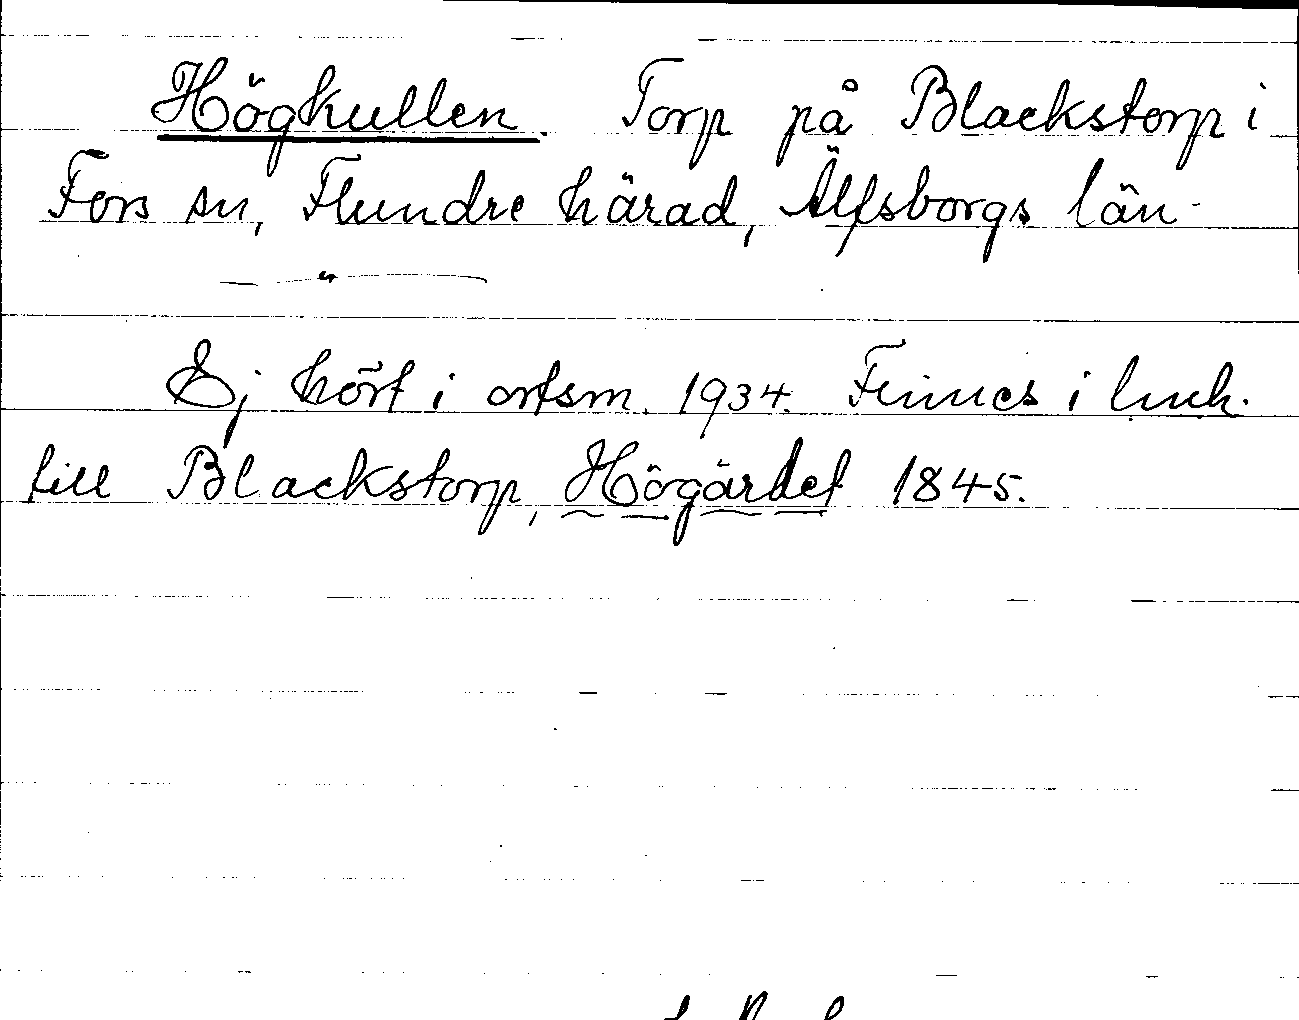 Högkullen. Torp på Blackstorp i
Fors sn, Flundre härad, Älfsborgs län.
— " —
Ej hört i ortsm. 1934. Finnes i lmh.
till Blackstorp, Högärdet 1845.